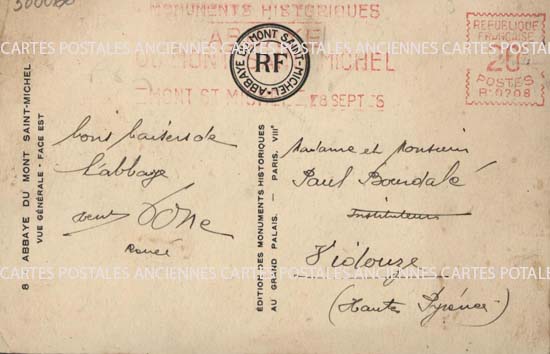 MONUMENTS HISTORIQUES
ABBAYE DU MONT SAINT-MICHEL
RF
MONT ST MICHEL 28 SEPT
REPUBLIQUE
FRANCAISE
20
POSTES
B.0208
CARTES POSTALES ANCIENNES CARTES POSTALES ANCIENNES CARTES POSTALES
8 ABBAYE DU MONT SAINT-MICHEL
VUE GÉNÉRALE - FACE EST
Bons baisers de
l'abbaye
Renée
ÉDITION DES MONUMENTS HISTORIQUES
AU GRAND PALAIS. - PARIS. VIIIᵉ
Madame et Monsieur
Paul Bourdalé
Instituteurs
Vidouze
(Hautes Pyrénées)
CARTES POSTALES ANCIENNES CARTES POSTALES ANCIENNES CARTES POSTALES